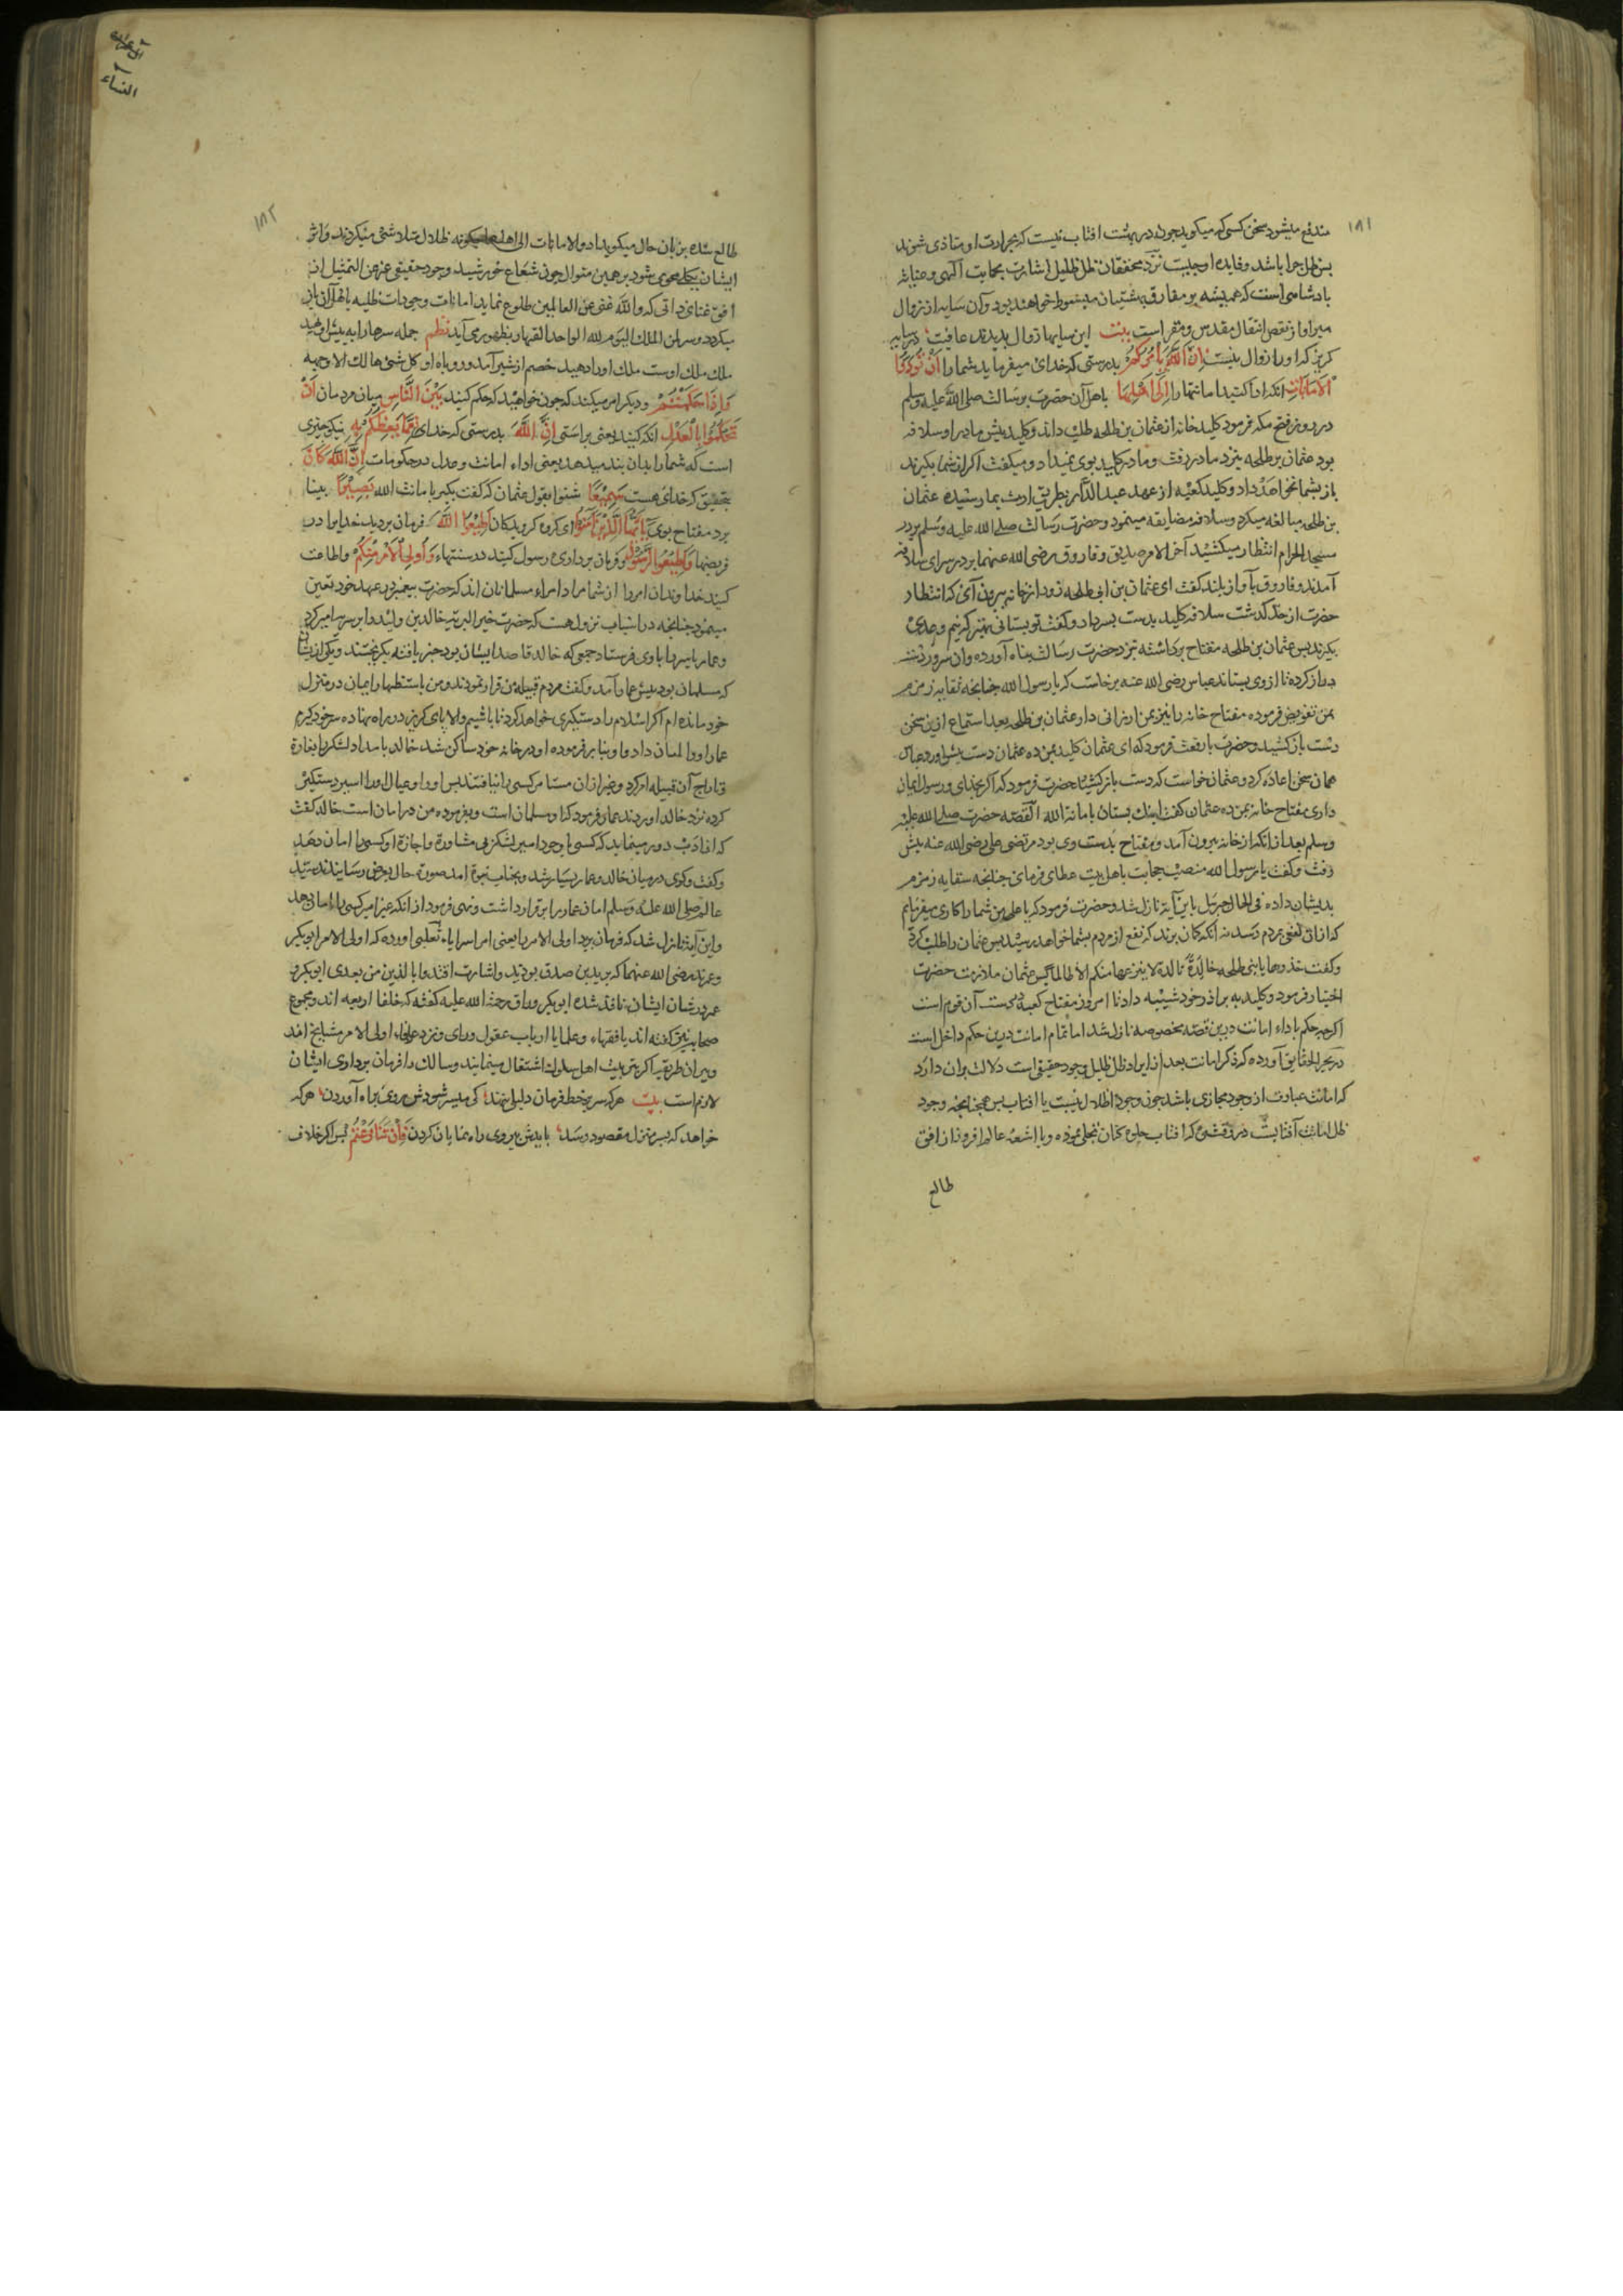 ۱۸۱
مندفع میشود سخن کسی که میکوید جون در بهشت افتاب نیست که بحرارت او متاذی شوند
بس ظل جرا باشد وفایده او جیست نزد محققان ظل ظلیل اشارت بحمایت الهی وعنایت
بادشاهی است که همیشه بر مفارق بهشتیان مبسوط خواهند بود وآن سایه از زوال
مبرا واز نقص انتقال مقدس ومعراست بیت این سایها زوال بذیرند عاقبت در سایه
کریز که اورا زوال نیست اِنَّ اللّٰهَ یَأمُرُکُم بدرستی که خدای میفرماید شمارا اَنْ تُؤَدُّوا
الاَمَانَاتِ انکه ادا کنید امانتهارا اِلٰی اَهْلِهَا باهل آن حضرت رسالت صلی الله علیه وسلم
در روز فتح مکه فرمود کلید خانه از عثمان بن طلحه طلب داند وکلید بیش مادر او سلافه
بود عثمان بن طلحه بنزد مادر رفت ومادر کلید بوی نمیداد ومیکفت اکر از شما بکیرند
باز بشما نخواهند داد وکلید کعبه از عهد عبد الدار بطریق ارث بما رسیده عثمان
بن طلحه مبالغه میکرد وسلافه مضایقه مینمود وحضرت رسالت صلی الله علیه وسلم بر در
مسجد الحرام انتظار میکشید آخر الامر صدیق وفاروق رضی الله عنهما بر در سرای سلافه
آمدند وفاروق بآواز بلند کفت ای عثمان بن ابی طلحه زود از خانه بیرون آی که انتظار
حضرت از حد کذشت سلافه کلید بدست بسر داد وکفت تو بستانی بهتر که تیم وعدی
بکیرند بس عثمان بن طلحه مفتاح برداشته بنزد حضرت رسالت بناه آورده وآن سرور دست
دراز کرده تا از وی بستاند عباس رضی الله عنه برخاست که یا رسول الله جنانجه سقایه زمزم
بمن تفویض فرموده مفتاح خانه را نیز بمن ارزانی دار عثمان بن طلحه بعد استماع این سخن
دست باز کشید وحضرت بار فرمود که ای عثمان کلید بمن ده عثمان دست بیش آورد عباس
همان سخن اعاده کرد وعثمان خواست که دست باز کشد حضرت فرمود که اکر بخدای ورسول ایمان
داری مفتاح خانه بمن ده عثمان کفت اینک بستان بامانة الله القصه حضرت صلی الله علیه
وسلم بعد از انکه از خانه بیرون آمد ومفتاح بدست وی بود مرتضی علی رضی الله عنه بیش
رفت وکفت یا رسول الله منصب حجابت باهل بیت عطای فرمای جنانجه سقایه زمزم
بدیشان داده فی الحال جبرئیل باین آیه نازل شد وحضرت فرمود که یا علی من شمارا کاری میفرمایم
که از ان نفعی بمردم رسد نه انکه کان برند که نفع از مردم بشما خواهد رسید بس عثمان را طلب کرد
وکفت خذوها یا بنی طلحه خالدة تالدة لا ینزعها منکم الا ظالم بس عثمان ملازمت حضرت
اختیار فرمود وکلید به برادر خود شیبه داد تا امروز مفتاح کعبه بدست آن قوم است
اکرجه حکم باداء امانت درین قصه مخصوصه نازل شد اما تمام امانت درین حکم داخل است
در بحر الحقایق آورده که ذکر امانت بعد از ایراد ظل ظلیل وجود حقیقی است دلالت بران دارد
که امانت عبارت از وجود مجازی باشد جون وجود اظلال نسبت با افتاب بس همجنانجه وجود
ظل امانت آفتابست در وقتی که افتاب جلوه کنان تجلی نموده وبا اشعهٔ عالم افروز از افق
طالع
ال عمران
النساء
۱۸۲
طالع شده بزبان حال میکوید ادوا الامانات الی اهلها ظلال متلاشی میکردند واثر
ایشان بکلی محو می شود بر همین منوال جون شعاع خورشید وجود حقیقی عز عن التمثیل از
افق غنای ذاتی که والله غنی عن العالمین طلوع نماید امانات وجودات ظلیه باهل آن باز
میکردد وسر لمن الملک الیوم لله الواحد القهار بظهور می آید نظم جمله سرهارا به بیش او نهید
ملک ملک اوست ملک اورا دهید خصم از شیر آمد ورو باه او کل شئ هالک الا وجهه
وَاِذَا حَکَمْتُمْ ودیکر امر میکند که جون خواهید که حکم کنید بَیْنَ النَّاسِ میان مردمان اَنْ
تَحْکُمُوا بِالْعَدْلِ انکه کنید یعنی براستی اِنَّ اللّٰهَ بدرستی که خدای نِعِمَّا یَعِظُکُمْ بِهِ نیکو جیزی
است که شمارا بدان بند میدهد یعنی اداء امانت وعدل در حکومات اِنَّ اللّٰهَ کَانَ
بتحقیق که خدای هست سَمِیْعًا شنوا بقول عثمان که کفت بکیر بامانت الله بَصِیْرًا بینا
برد مفتاح بوی یَا اَیُّهَا الَّذِیْنَ آمَنُوا ای کروه کرویدکان اَطِیْعُوا اللّٰهَ فرمان برید خدایرا در
فریضها وَاَطِیْعُوا الرَّسُوْلَ وفرمان برداری رسول کنید در سنتهاء وَاُولِی الْاَمْرِ مِنْکُمْ واطاعت
کنید خداوندان امررا از شما مراد امراء مسلمانان اند که حضرت بیغمبر در عهد خود تعین
مینمود جنانجه در اسباب نزول هست که حضرت خیر البریه خالد بن ولید را بر سریه امیر کرد
وعمار یاسررا باوی فرستاد جمعی که خالد قاصد ایشان بود خبر یافته بکریختند ویکی از ایشان
که مسلمان بود بیش عمار آمد وکفت مردم قبیله من فرار نمودند ومن باستظهار ایمان در منزل
خود مانده ام اکر اسلام مرا دستکیری خواهد کرد تا باشیم والا بای کریز در راه نهاده سر خود کیرم
عمار اورا امان داد واو بنا بر فرموده او در خانه خود ساکن شد خالد بامداد لشکررا بغارة
وتاراج آن قبیله امر کرد وغیر ازان مستامن کسی را نیافتند بس اورا وعیال اورا اسیر ودستکیر
کرده نزد خالد اوردند عمار فرمود که او مسلمان است وبفرموده من در امان است خالد کفت
که از ادب دور مینماید که کسی با وجود امیر لشکر بی مشاورة واجازة او کسی را امان دهد
وکفت وکوی درمیان خالد وعمار بسیار شد وبجناب نبوة امد صورة حال بعرض رسانیدند سید
عالم صلی الله علیه وسلم امان عماررا برقرار داشت ونهی فرمود از انکه غیر امیر کسی را امان دهد
واین آیه نازل شد که فرمان برید اولی الامررا یعنی امراء سرایاء ثعلبی اورده که اولی الامر ابو بکر
وعمرند رضی الله عنهما که وزیدین صدق بودند واشارت اقتدوا بالذین من بعدی ابو بکر و
عمر در شان ایشان نافذ شده ابو بکر وراق رحمة الله علیه کفته که خلفا اربعه اند ومجموع
صحابه نیز کفته اند یا فقهاء وعلما یا ارباب عقول ورای ونزد عرفا اولی الامر مشایخ اند
وبیران طریقه اکر بتربیت اهل سلوک اشتغال مینمایند وسالک را فرمان برداری ایشان
لازم است بیت هرکه سر بر خط فرمان دلیلی ننهد کی میسر شودش روی براه آوردن هرکه
خواهد که بسر منزل مقصود رسد بایدش بیروی راه نمایان کردن فَاِنْ تَنَازَعْتُمْ بس اکر خلاف